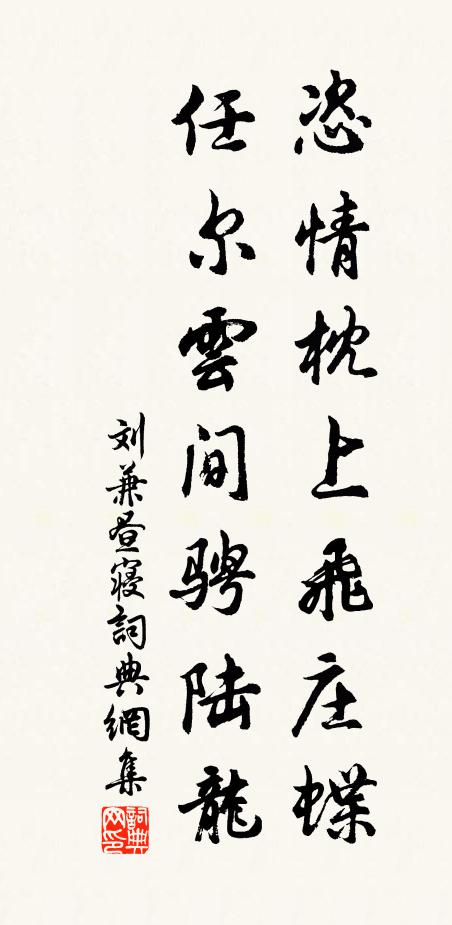 恣情枕上飛庄蝶
任尔雲间骋陆龍
刘兼昼寝詞典網集
詞典网印